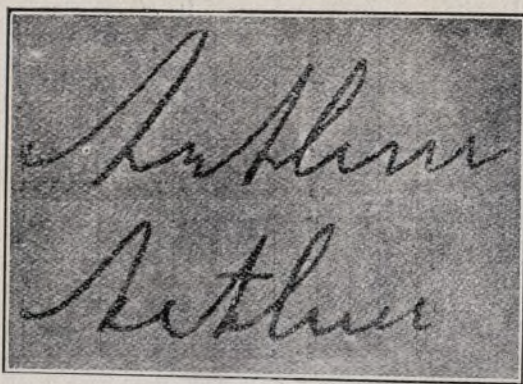 Arthur
Arthur